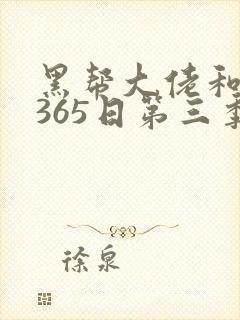 黑帮大佬和
365日第三季
徐泉